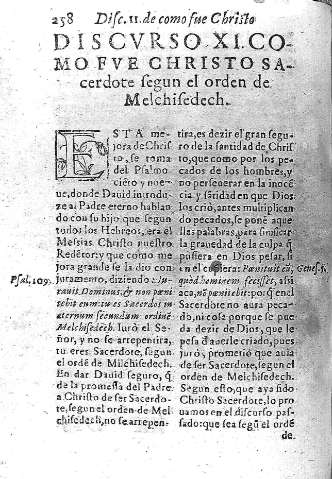 258 Disc. 11. de como fue Christo
DISCVRSO XI. CO-
MO FVE CHRISTO SA-
cerdote segun el orden de
Melchisedech.
ESTA me
jora de Chris
to, se toma
del Psalmo
ciẽto y nue
ue, donde Dauid introdu-
ze al Padre eterno hablan
do con su hijo que segun
todos los Hebreos, era el
Messias Christo nuestro
Redẽtor; y que como me
jora grande se la dio con
juramento, diziendo: Iu-
rauit Dominus, & non pœni
tebit eum: tu es Sacerdos in
æternum secundum ordinẽ
Melchisedech. Iurò el Se-
ñor, y no se arrepentira,
tu eres Sacerdote, segun
el ordẽ de Melchisedech.
En dar Dauid seguro, q̃
de la promessa del Padre
a Christo de ser Sacerdo-
te, segun el orden de Mel
chisedech, no se arrepen-
Psal, 109.
tira, es dezir el gran segu-
ro de la santidad de Chris
to, que como por los pe-
cados de los hombres, y
no perseuerar en la inocẽ
cia y santidad en que Dios
los criò, antes multiplican
do pecados, se pone aque
llas palabras, para significar
la grauedad de la culpa q̃
pusiera en Dios pesar, si
en el cupiera: Pœnituit eũ,
quòd hominem fecisset, assi
aca, nõ pœnitebit: porq̃ en el
Sacerdote no aura peca-
do, ni cosa porque se pue
da dezir de Dios, que le
pesa d'auerle criado, pues
jurò, y prometiò que auia
de ser Sacerdote, segun el
orden de Melchisedech.
Segun esto, que aya sido
Christo Sacerdote, lo pro
uamos en el discurso pas-
sado: que sea segũ el ordẽ
de.
Genes. 6.